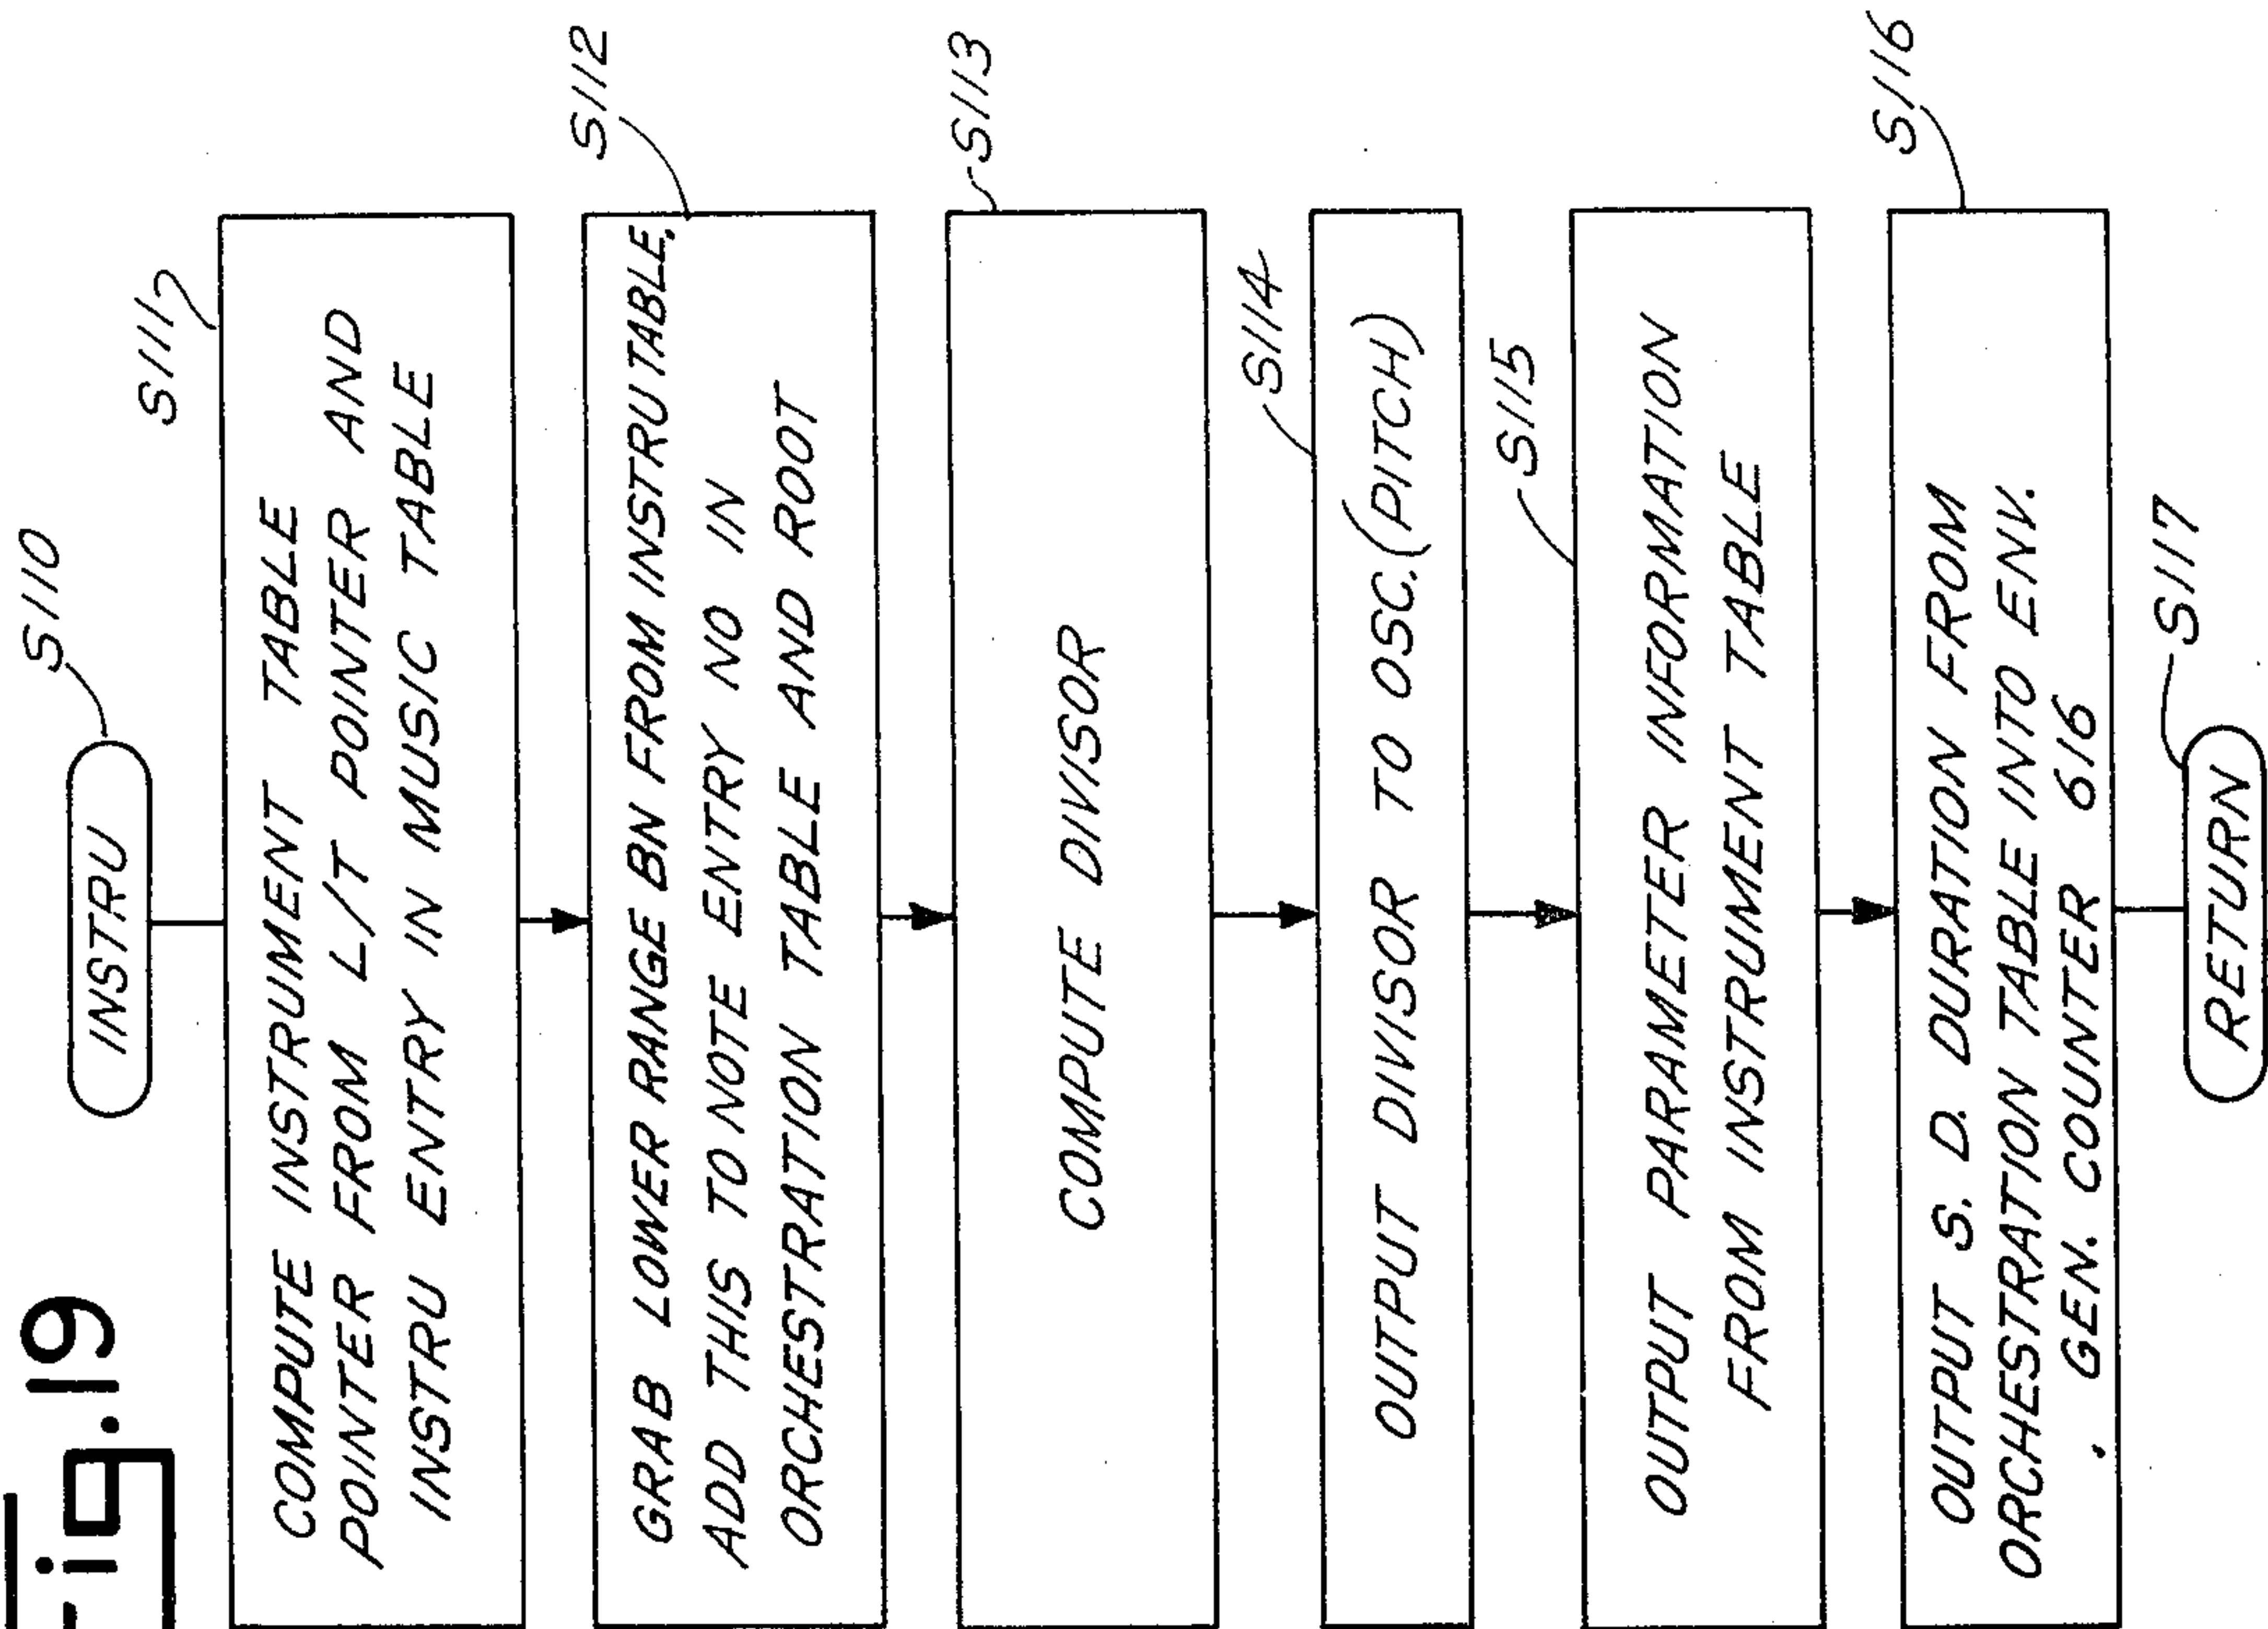 Fig.19
INSTRU
S110
COMPUTE INSTRUMENT TABLE
POINTER FROM L/T POINTER AND
INSTRU ENTRY IN MUSIC TABLE
S111
GRAB LOWER RANGE BN FROM INSTRU TABLE,
ADD THIS TO NOTE ENTRY NO IN
ORCHESTRATION TABLE AND ROOT
S112
COMPUTE DIVISOR
S113
OUTPUT DIVISOR TO OSC. (PITCH)
S114
OUTPUT PARAMETER INFORMATION
FROM INSTRUMENT TABLE
S115
OUTPUT S. D. DURATION FROM
ORCHESTRATION TABLE INTO ENV.
GEN. COUNTER 616
S116
RETURN
S117